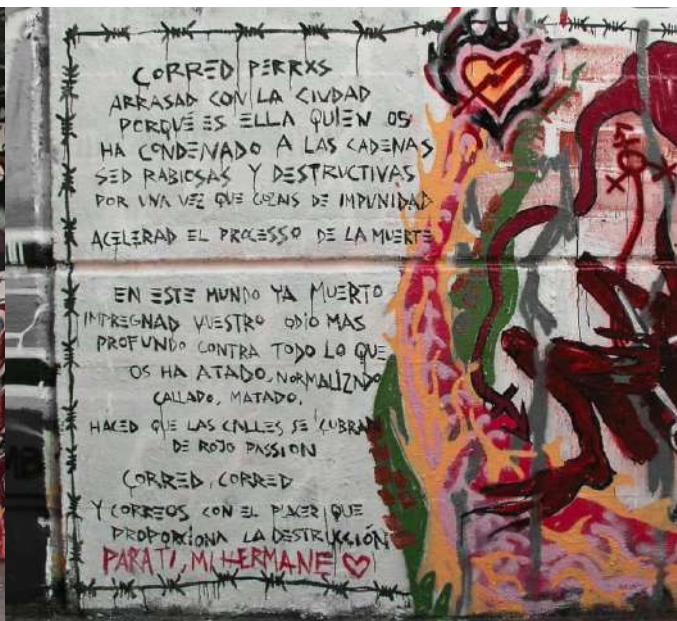 CORRED PERRXS
ARRASAD CON LA CIUDAD
PORQUÉ ES ELLA QUIEN OS
HA CONDENADO A LAS CADENAS
SED RABIOSAS Y DESTRUCTIVAS
POR UNA VEZ QUE GOZAIS DE IMPUNIDAD
ACELERAD EL PROCESSO DE LA MUERTE
EN ESTE MUNDO YA MUERTO
IMPREGNAD VUESTRO ODIO MAS
PROFUNDO CONTRA TODO LO QUE
OS HA ATADO, NORMALIZADO
CALLADO, MATADO.
HACED QUE LAS CALLES SE CUBRAN
DE ROJO PASSION
CORRED, CORRED
Y CORREOS CON EL PLACER QUE
PROPORCIONA LA DESTRUCCIÓN
PARA TI, MI HERMANE